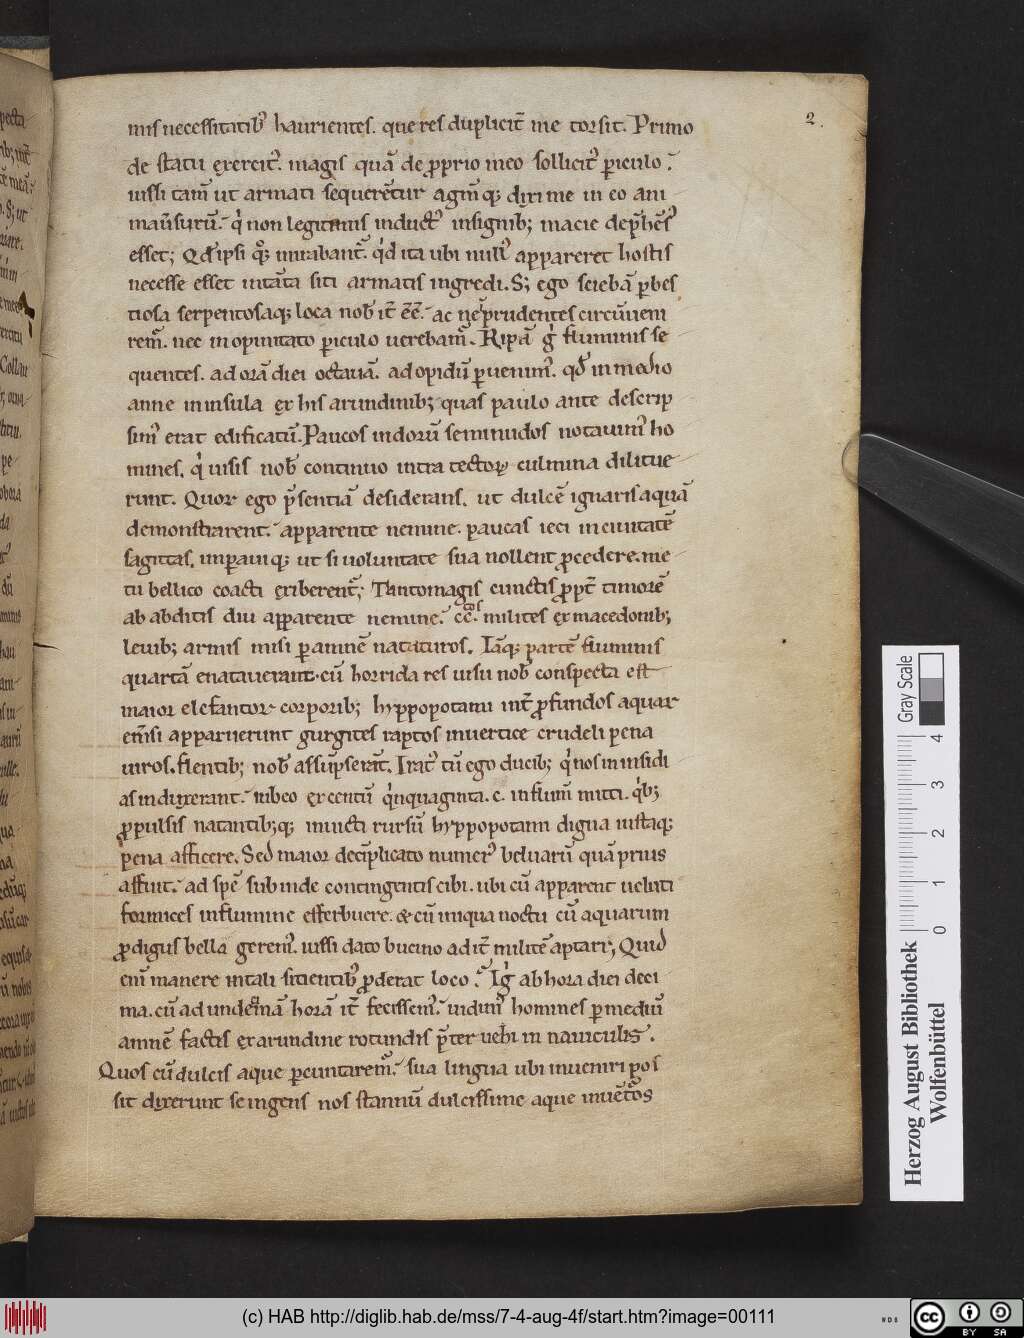 2.
mis necessitatib᷒ haurientes. que res duplicit̄ me torsit. Primo
de statu exercit᷒. magis quā de ꝓprio meo sollicit᷒ ꝑiculo.
iussi tam̄ ut armati sequerētur agm̄ q; dixi me in eo ani
q non legitimis induct᷒ insignib; macie
esset; Qd̄ ipsi q᷒; mirabant̄. qd ita ubi null᷒ appareret hostis
necesse esset armatis ingredi. S; ego sciebā ꝑ bes
tiosa serpentosaq; loca nob̄ it̄ ēē. ac ne īprudentes circūueni
rem᷒. nec inopinitato ꝑiculo uerebam̄. Ripā g fluminis se
quentes. ad orā diei octauā. ad opidū ꝑuenim᷒. qd̄ in medio
amne in insula ex his arundinib; quas paulo ante descrip
sim᷒ erat edificatū. Paucos indorū seminudos notauim᷒ ho
mines. q uisis nob̄ continuo intra tectoꝝ culmina dilitue
runt. Quor ego p̄sentiā desiderans. ut dulcē ignaris aquā
demonstrarent. apparente nemine. paucas ieci in ciuitatē
sagittas. ut si uoluntate sua nollent ꝓcedere. me
tu bellico coacti exiberent᷒; Tantomagis cunctis ꝓpt̄ timorē
ab abditis diu apparente nemine. cc̄tos milites ex macedonib;
leuib; armis misi ꝑ amnē nataturos. Iāq; partē fluminis
quartā enatauerant. cū horrida res uisu nob̄ conspecta est
maior elefantor corporib; hyppopotami int̄ ꝓfundos aquar
em̄si apparuerunt gurgites raptos inuertice crudeli pena
uiros. flentib; nob̄ assūpserāt. Irat᷒ tū ego ducib; q nos in insidi
as induxerant. iubeo ex centū qnquaginta. c. in flum̄ mitti. qb;
ꝓpulsis natantib;q; inuicti rursū hyppopotami digna iustaq;
pena afficere. Sed maior decīplicato numer᷒ beluarū quā prius
affuit. ad spē subinde contingentis cibi. ubi cū apparent ueluti
formices in flumine efferbuere. & cū iniqua noctu cū aquarum
ꝓdigus bella gerem᷒. iussi dato bucino ad it̄ militē aptari; Quid
eni manere in tali sitientib᷒ ꝓderat loco. Ig ab hora diei deci
ma. cū ad undecimā horā it̄ fecissem᷒. uidim᷒ homines ꝑ mediū
amnē factis ex arundine rotundis p̄ter uehi in nauiculis.
Quos cū dulcis aque pcuntarem᷒. sua lingua ubi inueniri pos
sit dixerunt se ingens nos stannū dulcissime aque inuētos
Gray Scale
0 1 2 3 4
Herzog August Bibliothek
Wolfenbüttel
(c) HAB http://diglib.hab.de/mss/7-4-aug-4f/start.htm?image=00111
cc BY SA